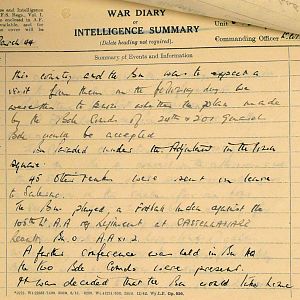 WAR DIARY
or
INTELLIGENCE SUMMARY
(Delete heading not required).
Unit
Commanding Officer
March 44
Summary of Events and Information
this county and the Bn was to expect a
visit from them on the following day. We
were then to decide whether the plan made
by the Bde Comds of 24th & 201 Guards
Bde would be accepted.
Bn paraded under the Adjutant in the town
square.
45 Other ranks were sent on leave
to Salerno.
The Bn played a Football match against the
105th Lt. A.A. Regiment at CASTELLAMARE
Result. Bn. 0. A.A x 2.
A further conference was held in Bn HQ
The two Bde Comds were present.
It was decided that the Bn would take